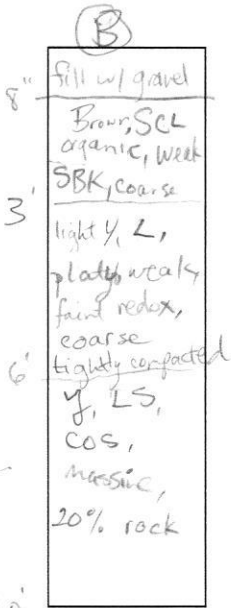 B
fill w/ gravel
8"
Brown, SCL
organic, weak
SBK, coarse
3'
light Y, L,
platy, weak,
faint redox,
coarse
tightly compacted
6'
Y, LS,
COS,
massive,
20% rock